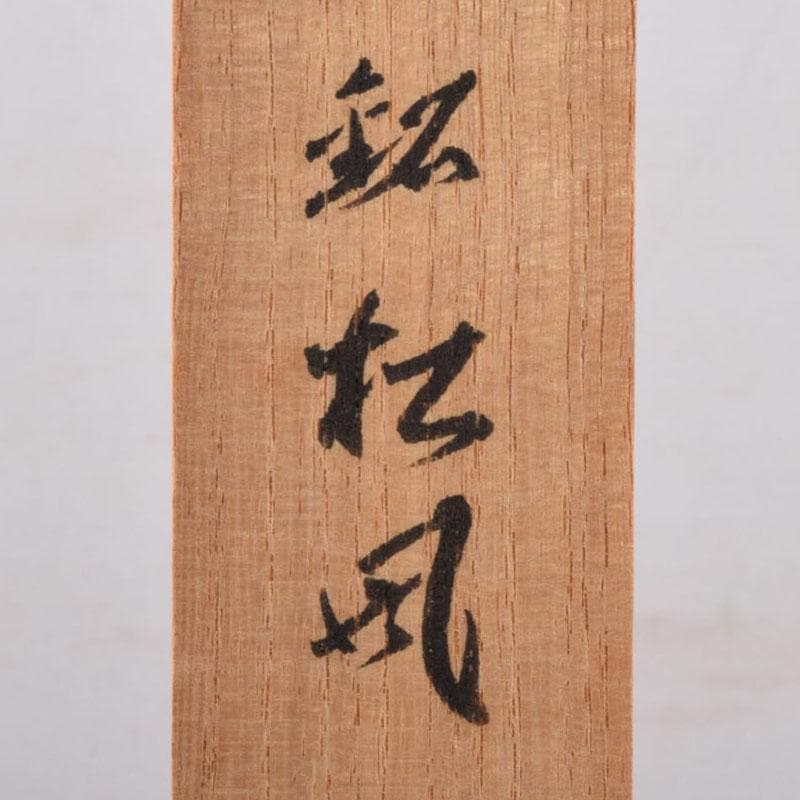 銘松風